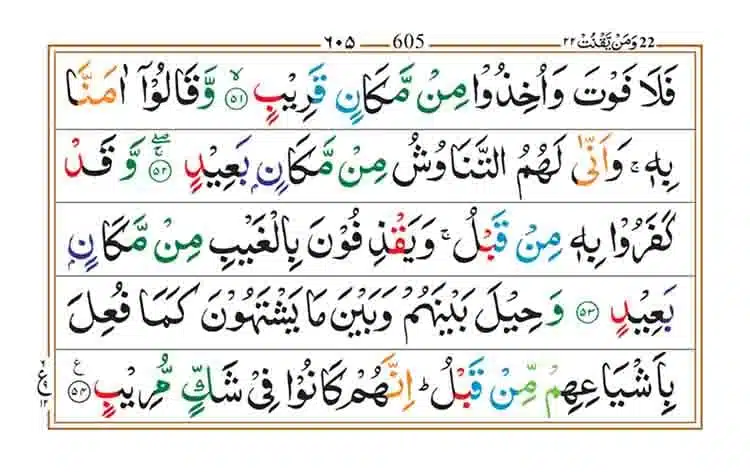 ٦٠٥ 605 وَمَنْ يَّقْنُتْ ٢٢ 22
فَلَا فَوْتَ وَاُخِذُوْا مِنْ مَّكَانٍ قَرِيْبٍ ۙ‏﴿۵۱﴾ وَّقَالُوْۤا اٰمَنَّا
بِهٖ ۚ وَاَنّٰى لَهُمُ التَّنَاوُشُ مِنْ مَّكَانٍۭ بَعِيْدٍ ۖۚ ﴿۵۲﴾ وَّقَدْ
كَفَرُوْا بِهٖ مِنْ قَبْلُ ۚ وَيَقْذِفُوْنَ بِالْغَيْبِ مِنْ مَّكَانٍۭ
بَعِيْدٍ ﴿۵۳﴾ وَحِيْلَ بَيْنَهُمْ وَبَيْنَ مَا يَشْتَهُوْنَ كَمَا فُعِلَ
بِاَشْيَاعِهِمْ مِّنْ قَبْلُ ؕ اِنَّهُمْ كَانُوْا فِيْ شَكٍّ مُّرِيْبٍ ﴿۵۴﴾ ع